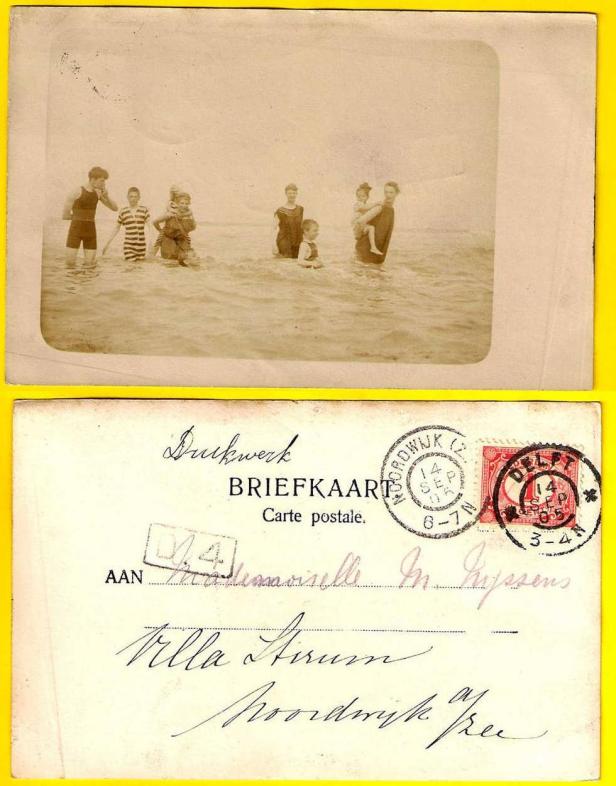 Drukwerk
BRIEFKAART.
Carte postale.
NOORDWIJK (Z
14
SEP
05
6-7N
DELFT
14
SEP
05
3-4N
D 4
AAN Mademoiselle M. Nyssens
Villa Stirum
Noordwijk a/
Zee